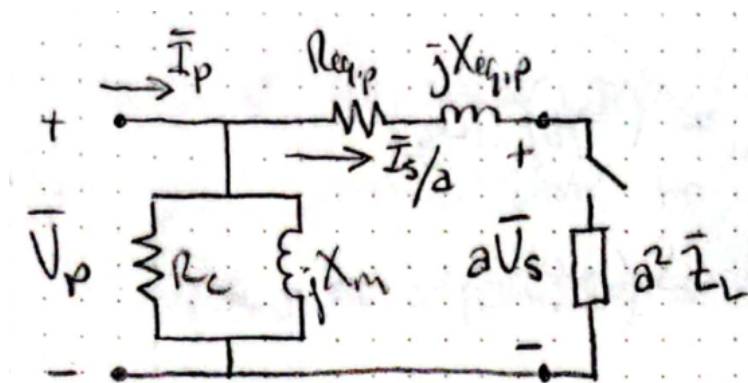 Īₚ
R_eq,p
jX_eq,p
+
Īₛ/a
+
V̄ₚ
R_c
jX_m
aV̄ₛ
a² Z̄_L
−
−